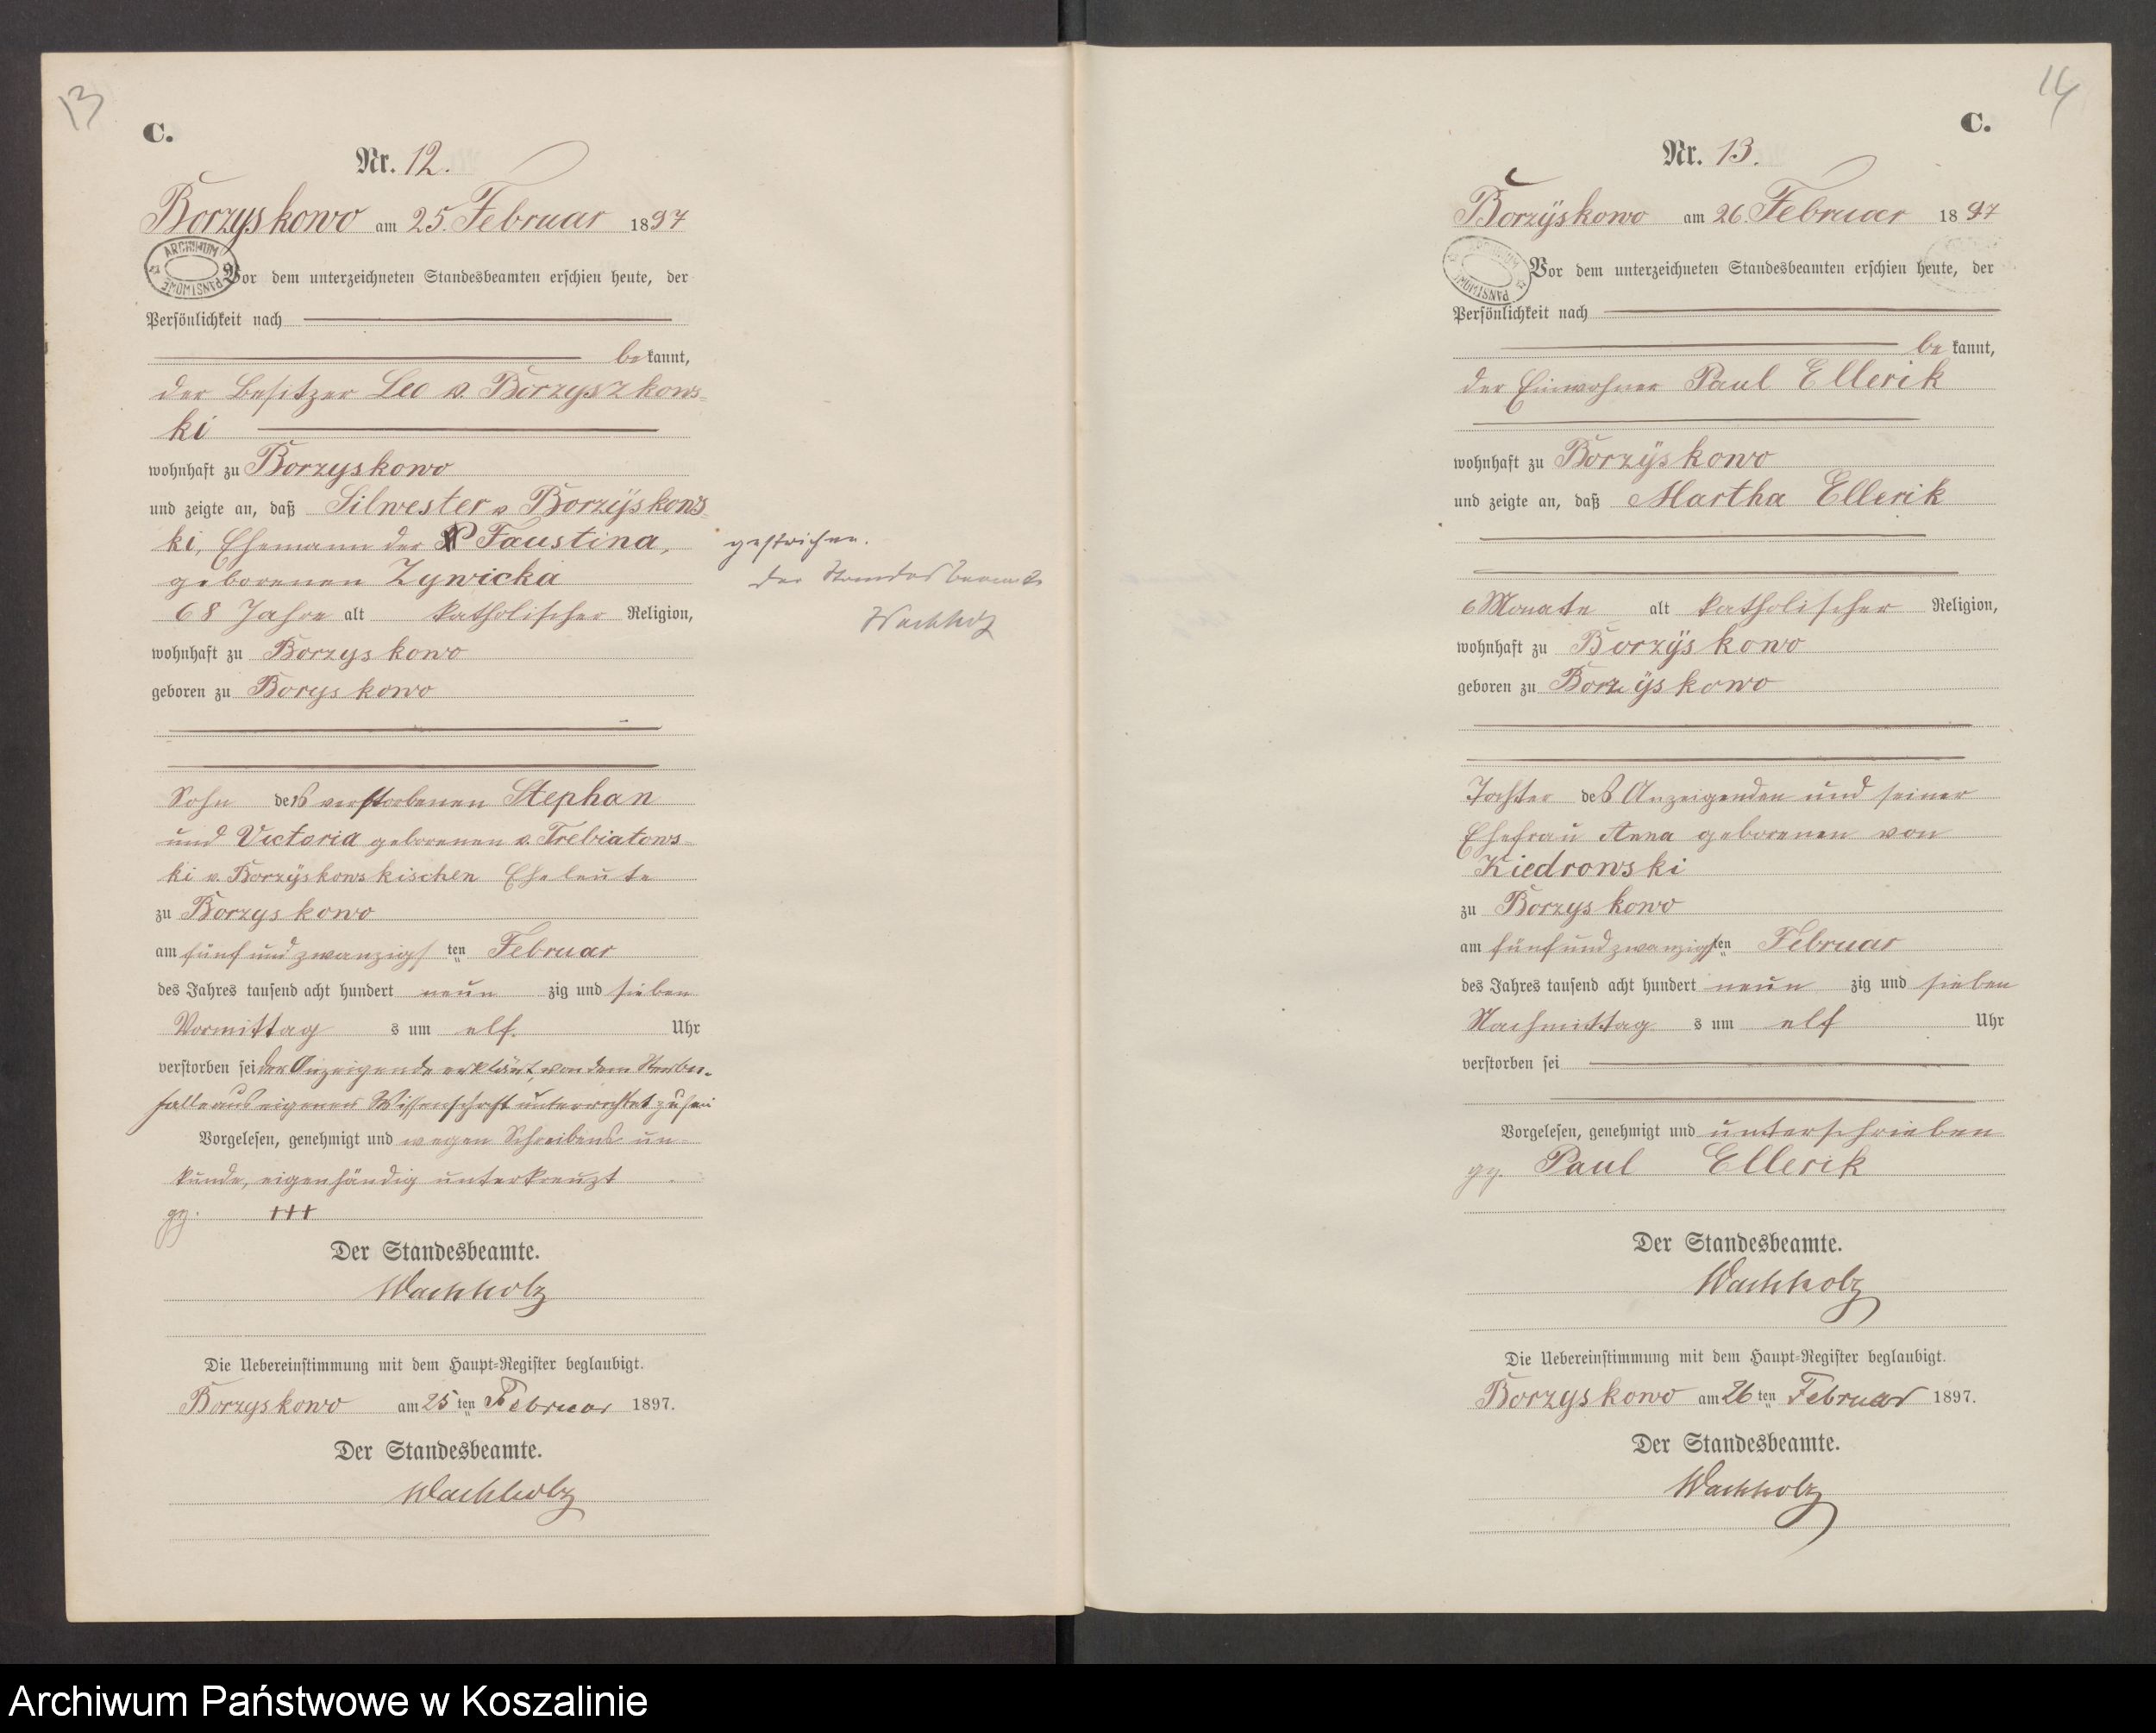 13
C.
Nr. 12.
Borzyskowo am 25. Februar 1897
ARCHIWUM PAŃSTWOWE
Vor dem unterzeichneten Standesbeamten erschien heute, der
Persönlichkeit nach
bekannt,
der Besitzer Leo v. Borzyszkows=
ki
wohnhaft zu Borzyskowo
und zeigte an, daß Silwester v Borzÿskows=
ki, Ehemann der Faustina,
gestrichen.
geborenen Zywicka
der Standesbeamte
68 Jahre alt katholischer Religion,
Wachholz
wohnhaft zu Borzyskowo
geboren zu Boryskowo
Sohn des verstorbenen Stephan
und Victoria geborenen v. Trebiatows=
ki v. Borzÿskowskischen Eheleute
zu Borzyskowo
am fünfundzwanzigsten Februar
des Jahres tausend acht hundert neunzig und sieben
Vormittags um elf. Uhr
verstorben sei der Anzeigende erklärt, von dem Sterbe=
falle aus eigener Wissenschaft unterrichtet zu sein
Vorgelesen, genehmigt und wegen Schreibens un=
kunde, eigenhändig unterkreuzt
gez. +++
Der Standesbeamte.
Wachholz
Die Uebereinstimmung mit dem Haupt=Register beglaubigt.
Borzyskowo am 25ten Februar 1897.
Der Standesbeamte.
Wachholz
14
C.
Nr. 13.
Borzÿskowo am 26. Februar 1897
ARCHIWUM PAŃSTWOWE
Vor dem unterzeichneten Standesbeamten erschien heute, der
Persönlichkeit nach
bekannt,
der Einwohner Paul Ellerik
wohnhaft zu Borzÿskowo
und zeigte an, daß Martha Ellerik
6 Monate alt katholischer Religion,
wohnhaft zu Borzÿskowo
geboren zu Borzÿskowo
Tochter des Anzeigenden und seiner
Ehefrau Anna geborenen von
Kiedrowski
zu Borzyskowo
am fünfundzwanzigsten Februar
des Jahres tausend acht hundert neunzig und sieben
Nachmittags um elf Uhr
verstorben sei
Vorgelesen, genehmigt und unterschrieben
gez. Paul Ellerik
Der Standesbeamte.
Wachholz
Die Uebereinstimmung mit dem Haupt=Register beglaubigt.
Borzyskowo am 26ten Februar 1897.
Der Standesbeamte.
Wachholz
Archiwum Państwowe w Koszalinie